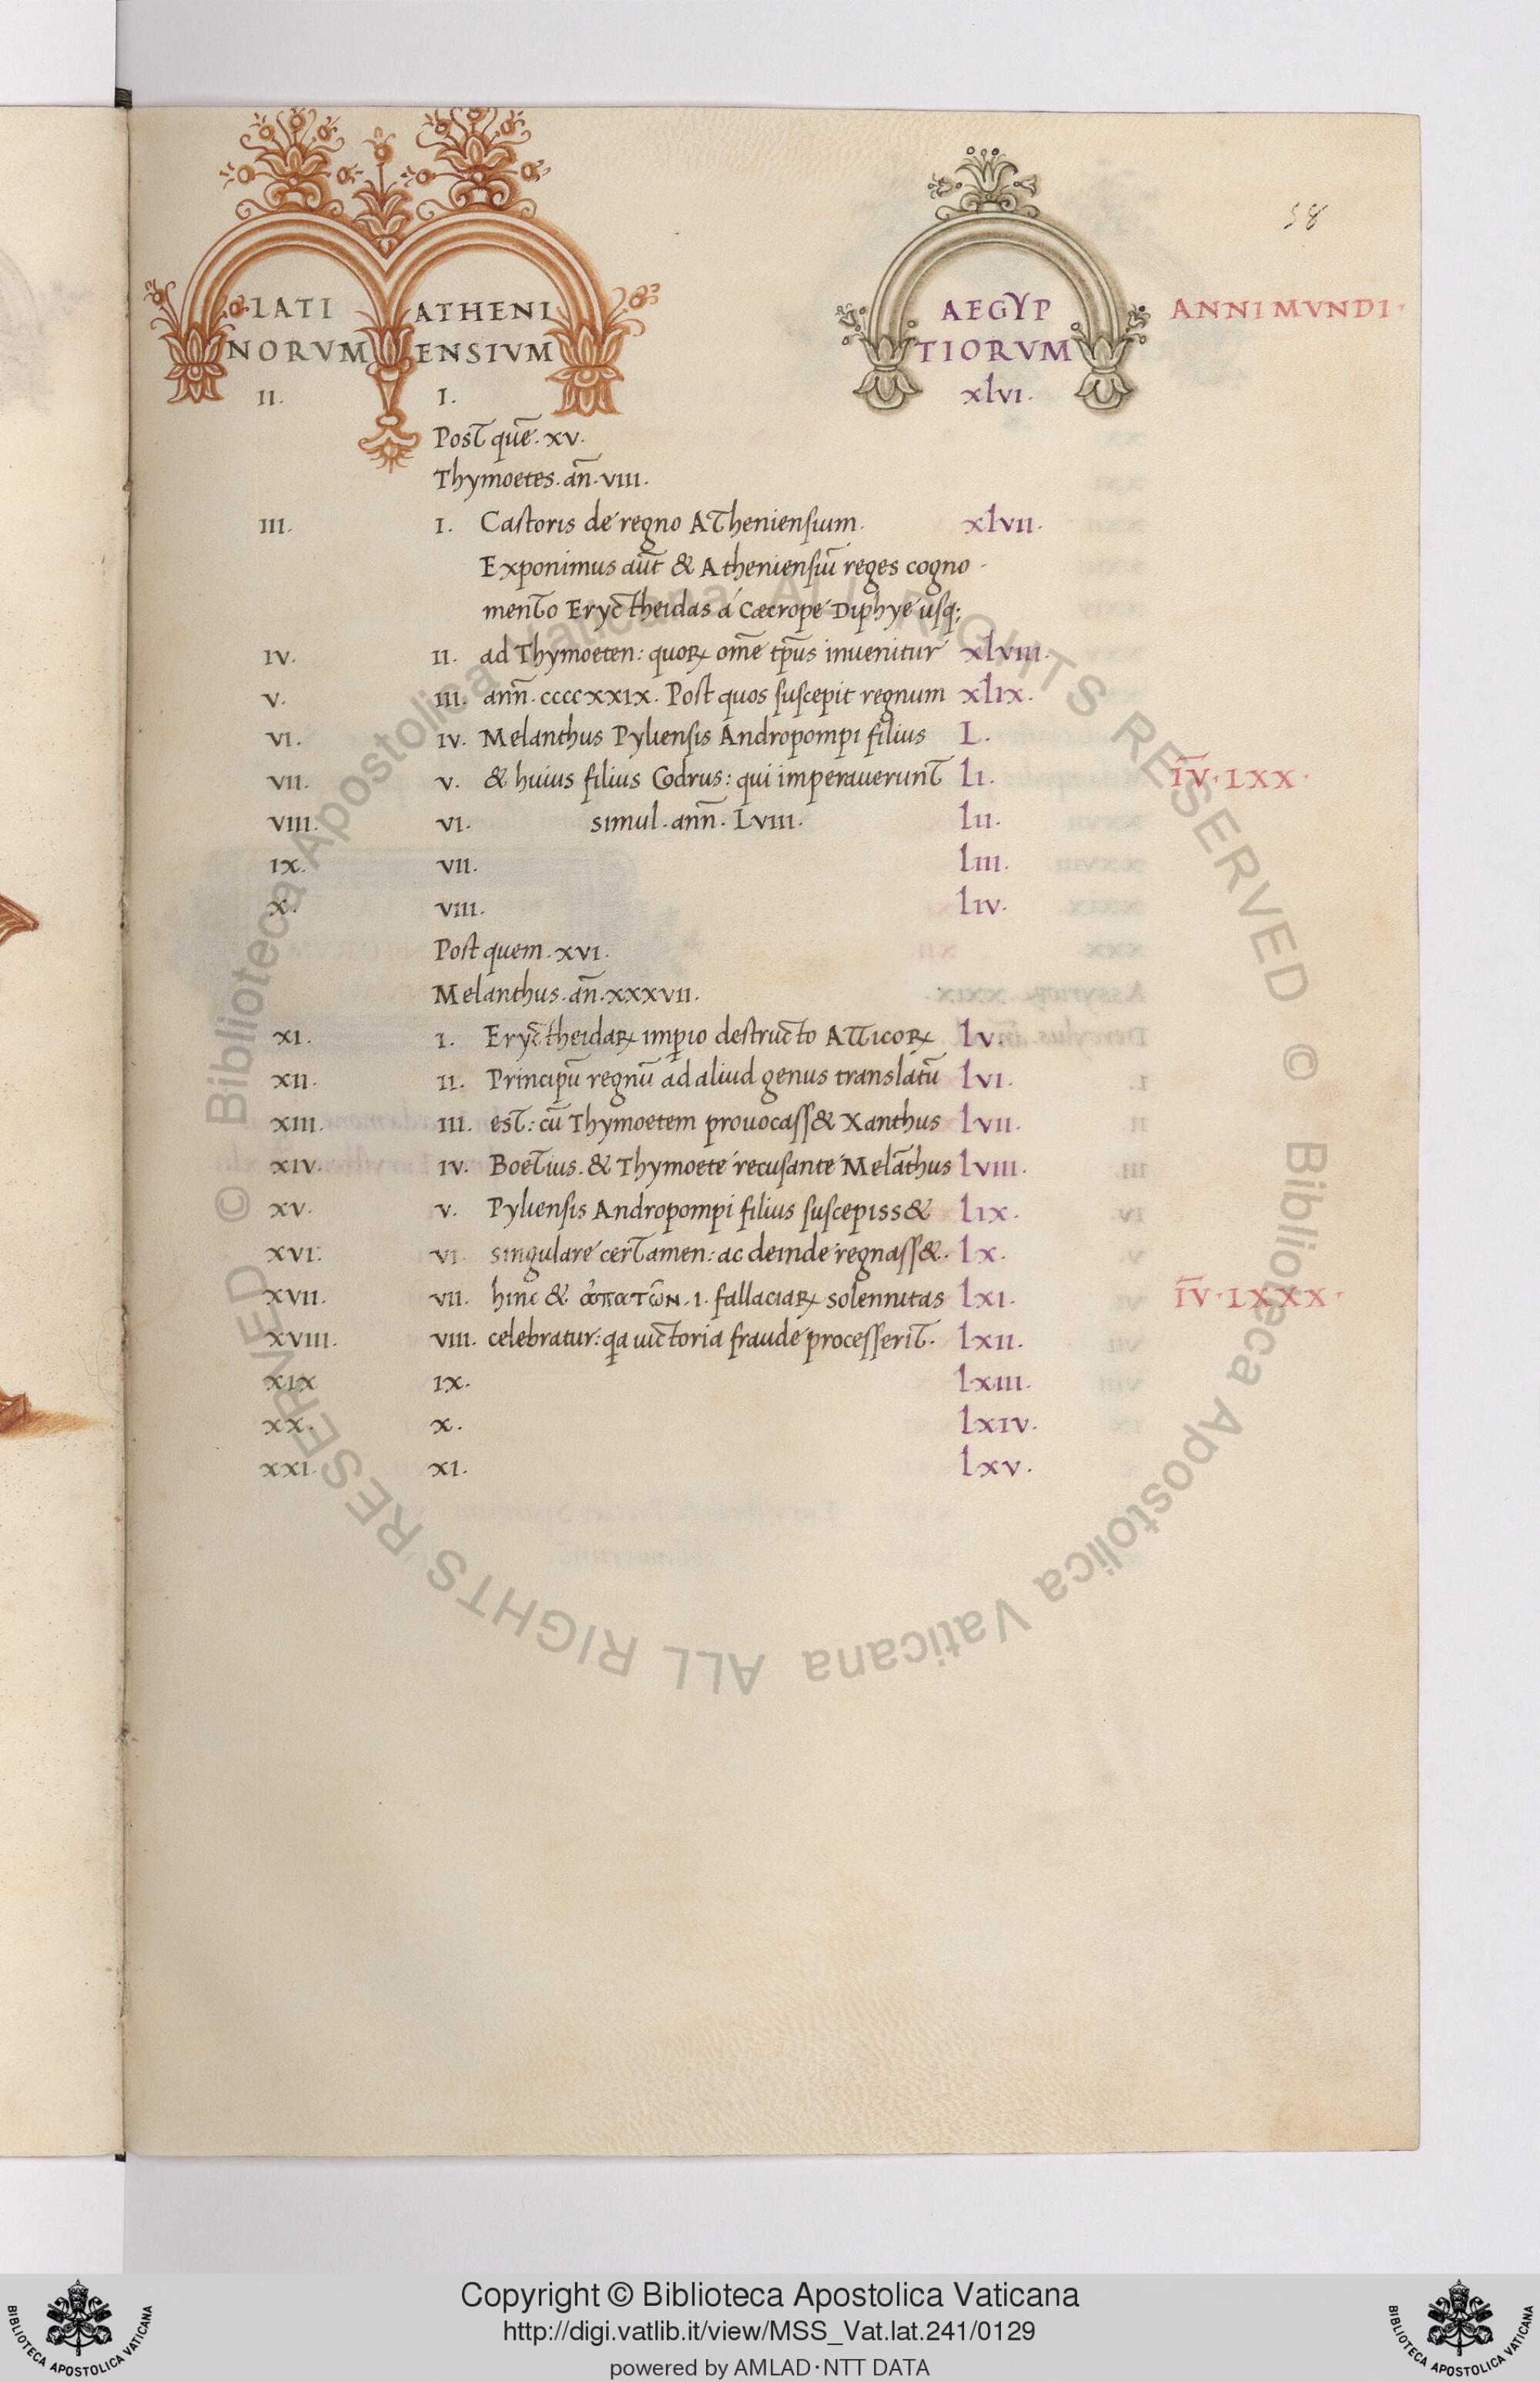 58
LATI ATHENI AEGYP ANNI MVNDI·
NORVM ENSIVM TIORVM
II. I. xlvi.
Post quē. xv.
Thymoetes. an̄. VIII.
III. I. Castoris de regno Atheniensium. xlvii.
Exponimus aut̄ & Atheniensiū reges cogno-
mento Eryctheidas á Cæcrope Diphye usq;
IV. II. ad Thymoeten: quoꝝ om̄e tp̄us inuenitur xlviii.
V. III. ann̄. ccccxxix. Post quos suscepit regnum xlix.
VI. IV. Melanthus Pyliensis Andropompi filius L.
VII. V. & huius filius Codrus: qui imperauerunt li. I̅V̅·LXX·
VIII. VI. simul. ann̄. LVIII. lii.
IX. VII. liii.
X. VIII. liv.
Post quem. xvi.
Melanthus. an̄. xxxvii.
XI. I. Eryctheidaꝝ imp̱io destructo Atticoꝝ lv.
XII. II. Principū regnū ad aliud genus translatū lvi.
XIII. III. est: cū Thymoetem prouocass& Xanthus lvii.
XIV. IV. Boetius. & Thymoete recusante Melāthus lviii.
XV. V. Pyliensis Andropompi filius suscepiss& lix.
XVI. VI singulare certamen: ac deinde regnass&. lx.
XVII. VII. hinc & ἀπατῶν. I. fallaciaꝝ solennitas lxi. I̅V̅·LXXX·
XVIII. VIII. celebratur: qa uictoria fraude processerit. lxii.
XIX IX. lxiii.
XX. X. lxiv.
XXI. XI. lxv.
© Biblioteca Apostolica Vaticana ALL RIGHTS RESERVED © Biblioteca Apostolica Vaticana ALL RIGHTS RESERVED
Copyright © Biblioteca Apostolica Vaticana
http://digi.vatlib.it/view/MSS_Vat.lat.241/0129
powered by AMLAD·NTT DATA
BIBLIOTECA APOSTOLICA VATICANA
BIBLIOTECA APOSTOLICA VATICANA